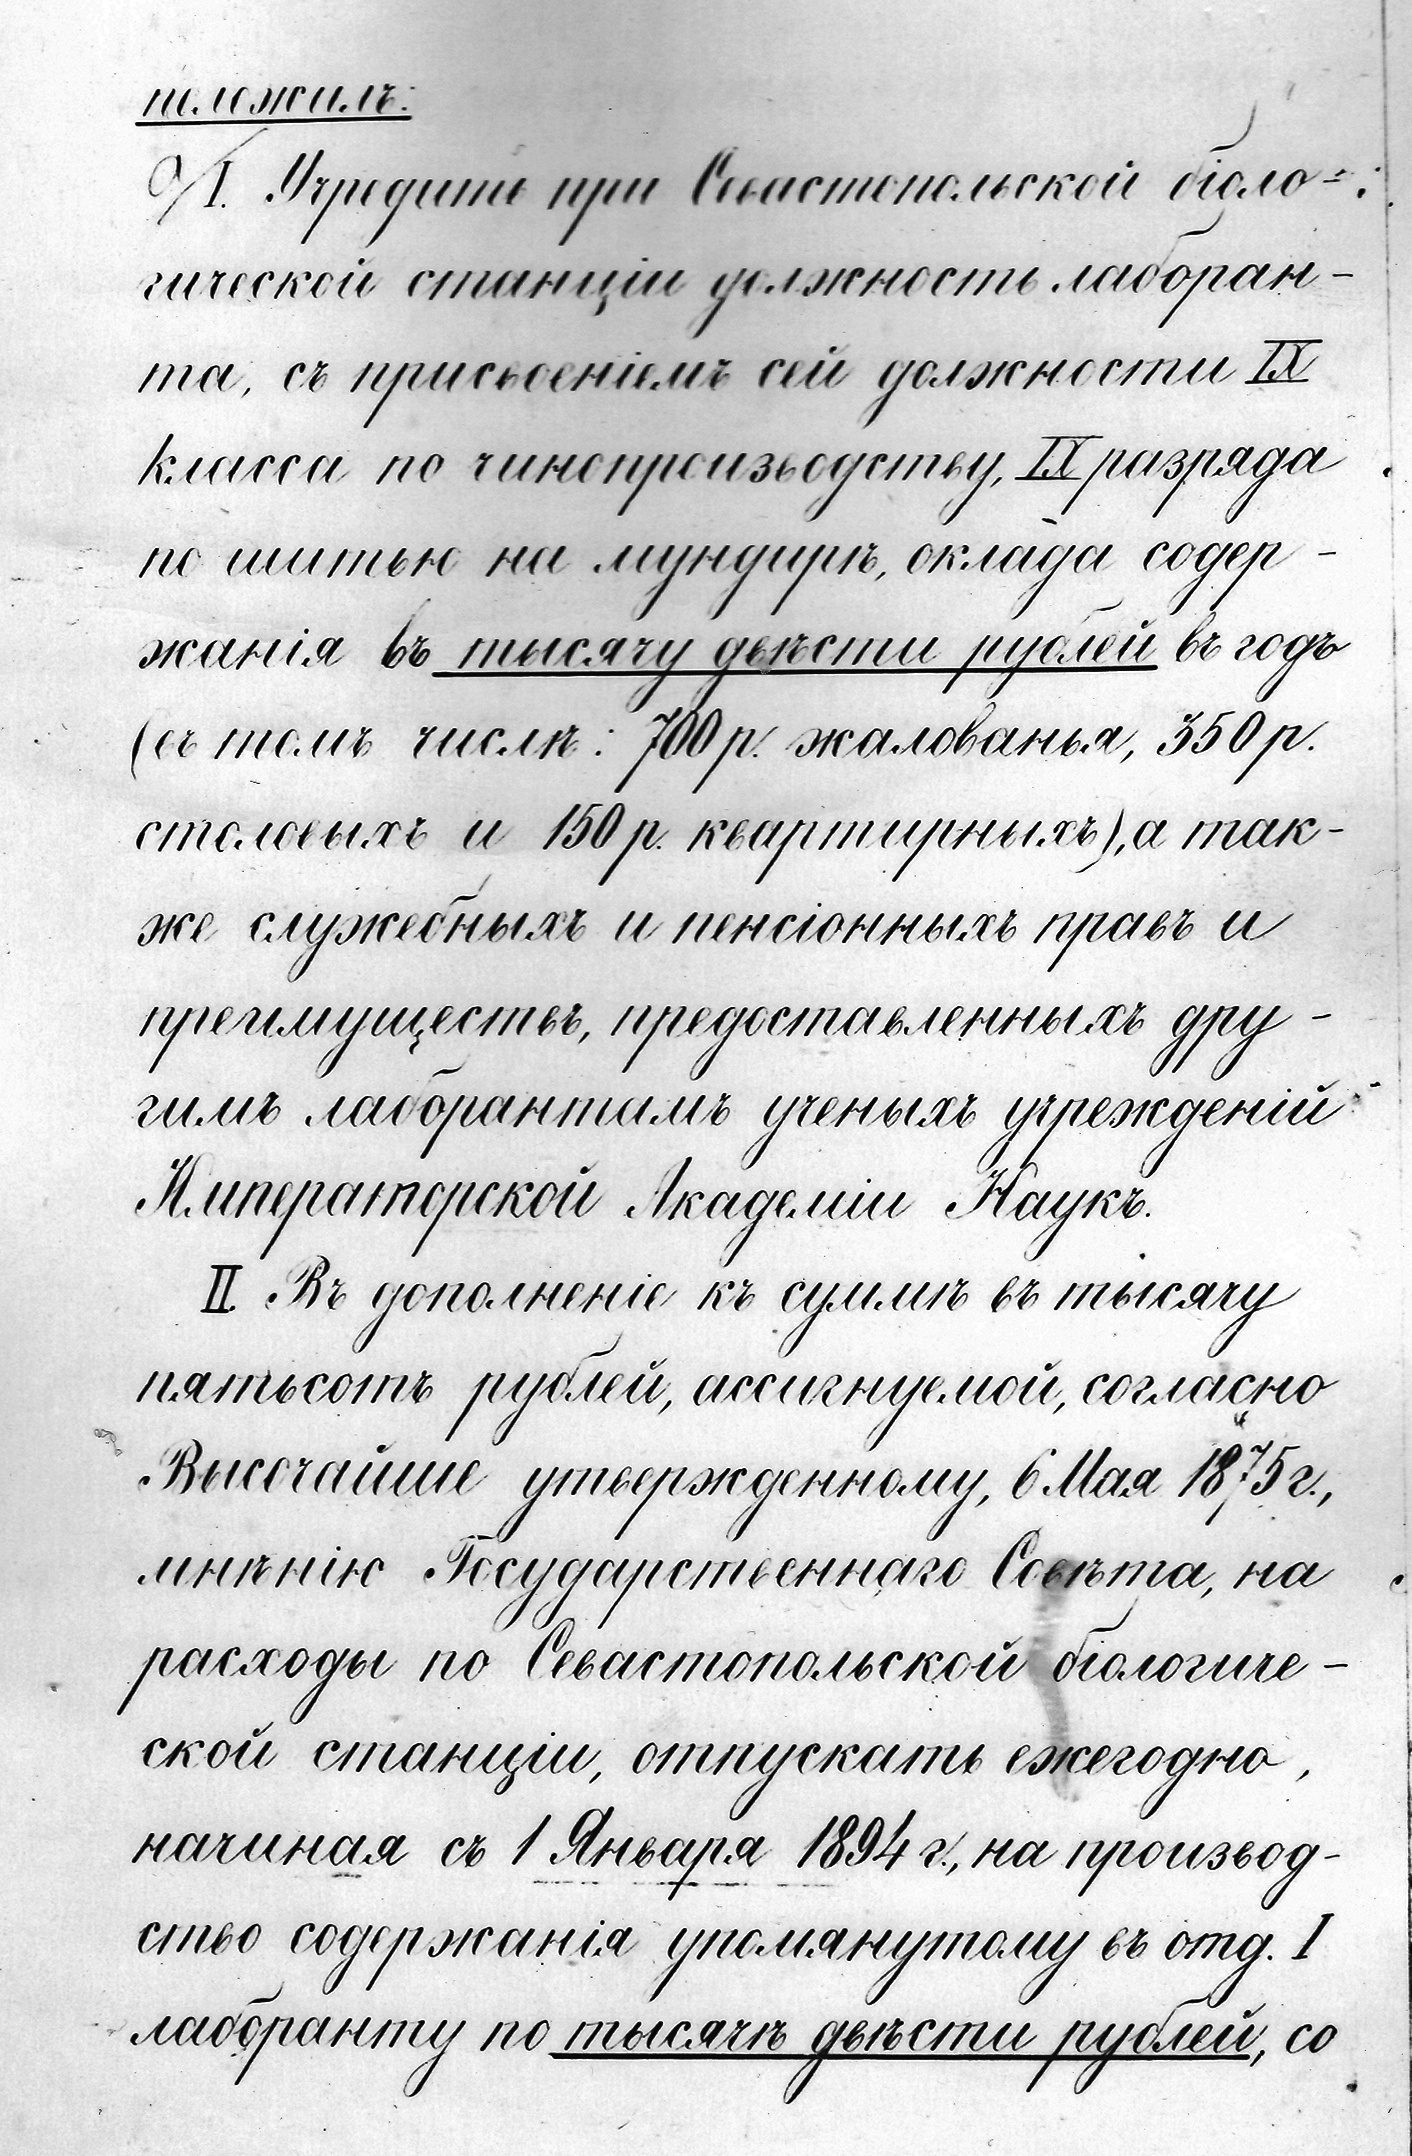 положилъ:
I. Учредить при Севастопольской біоло-
гической станціи должность лаборан-
та, съ присвоеніемъ сей должности IX
класса по чинопроизводству, IX разряда
по шитью на мундирѣ, оклада содер-
жанія въ тысячу двѣсти рублей въ годъ
(въ томъ числѣ: 700 р. жалованья, 350 р.
столовыхъ и 150 р. квартирныхъ), а так-
же служебныхъ и пенсіонныхъ правъ и
преимуществъ, предоставленныхъ дру-
гимъ лаборантамъ ученыхъ учрежденій
Императорской Академіи Наукъ.
II. Въ дополненіе къ суммѣ въ тысячу
пятьсотъ рублей, ассигнуемой, согласно
Высочайше утвержденному, 6 Мая 1875 г.,
мнѣнію Государственнаго Совѣта, на
расходы по Севастопольской біологиче-
ской станціи, отпускать ежегодно,
начиная съ 1 Января 1894 г., на производ-
ство содержанія упомянутому въ отд. I
лаборанту по тысячѣ двѣсти рублей, со